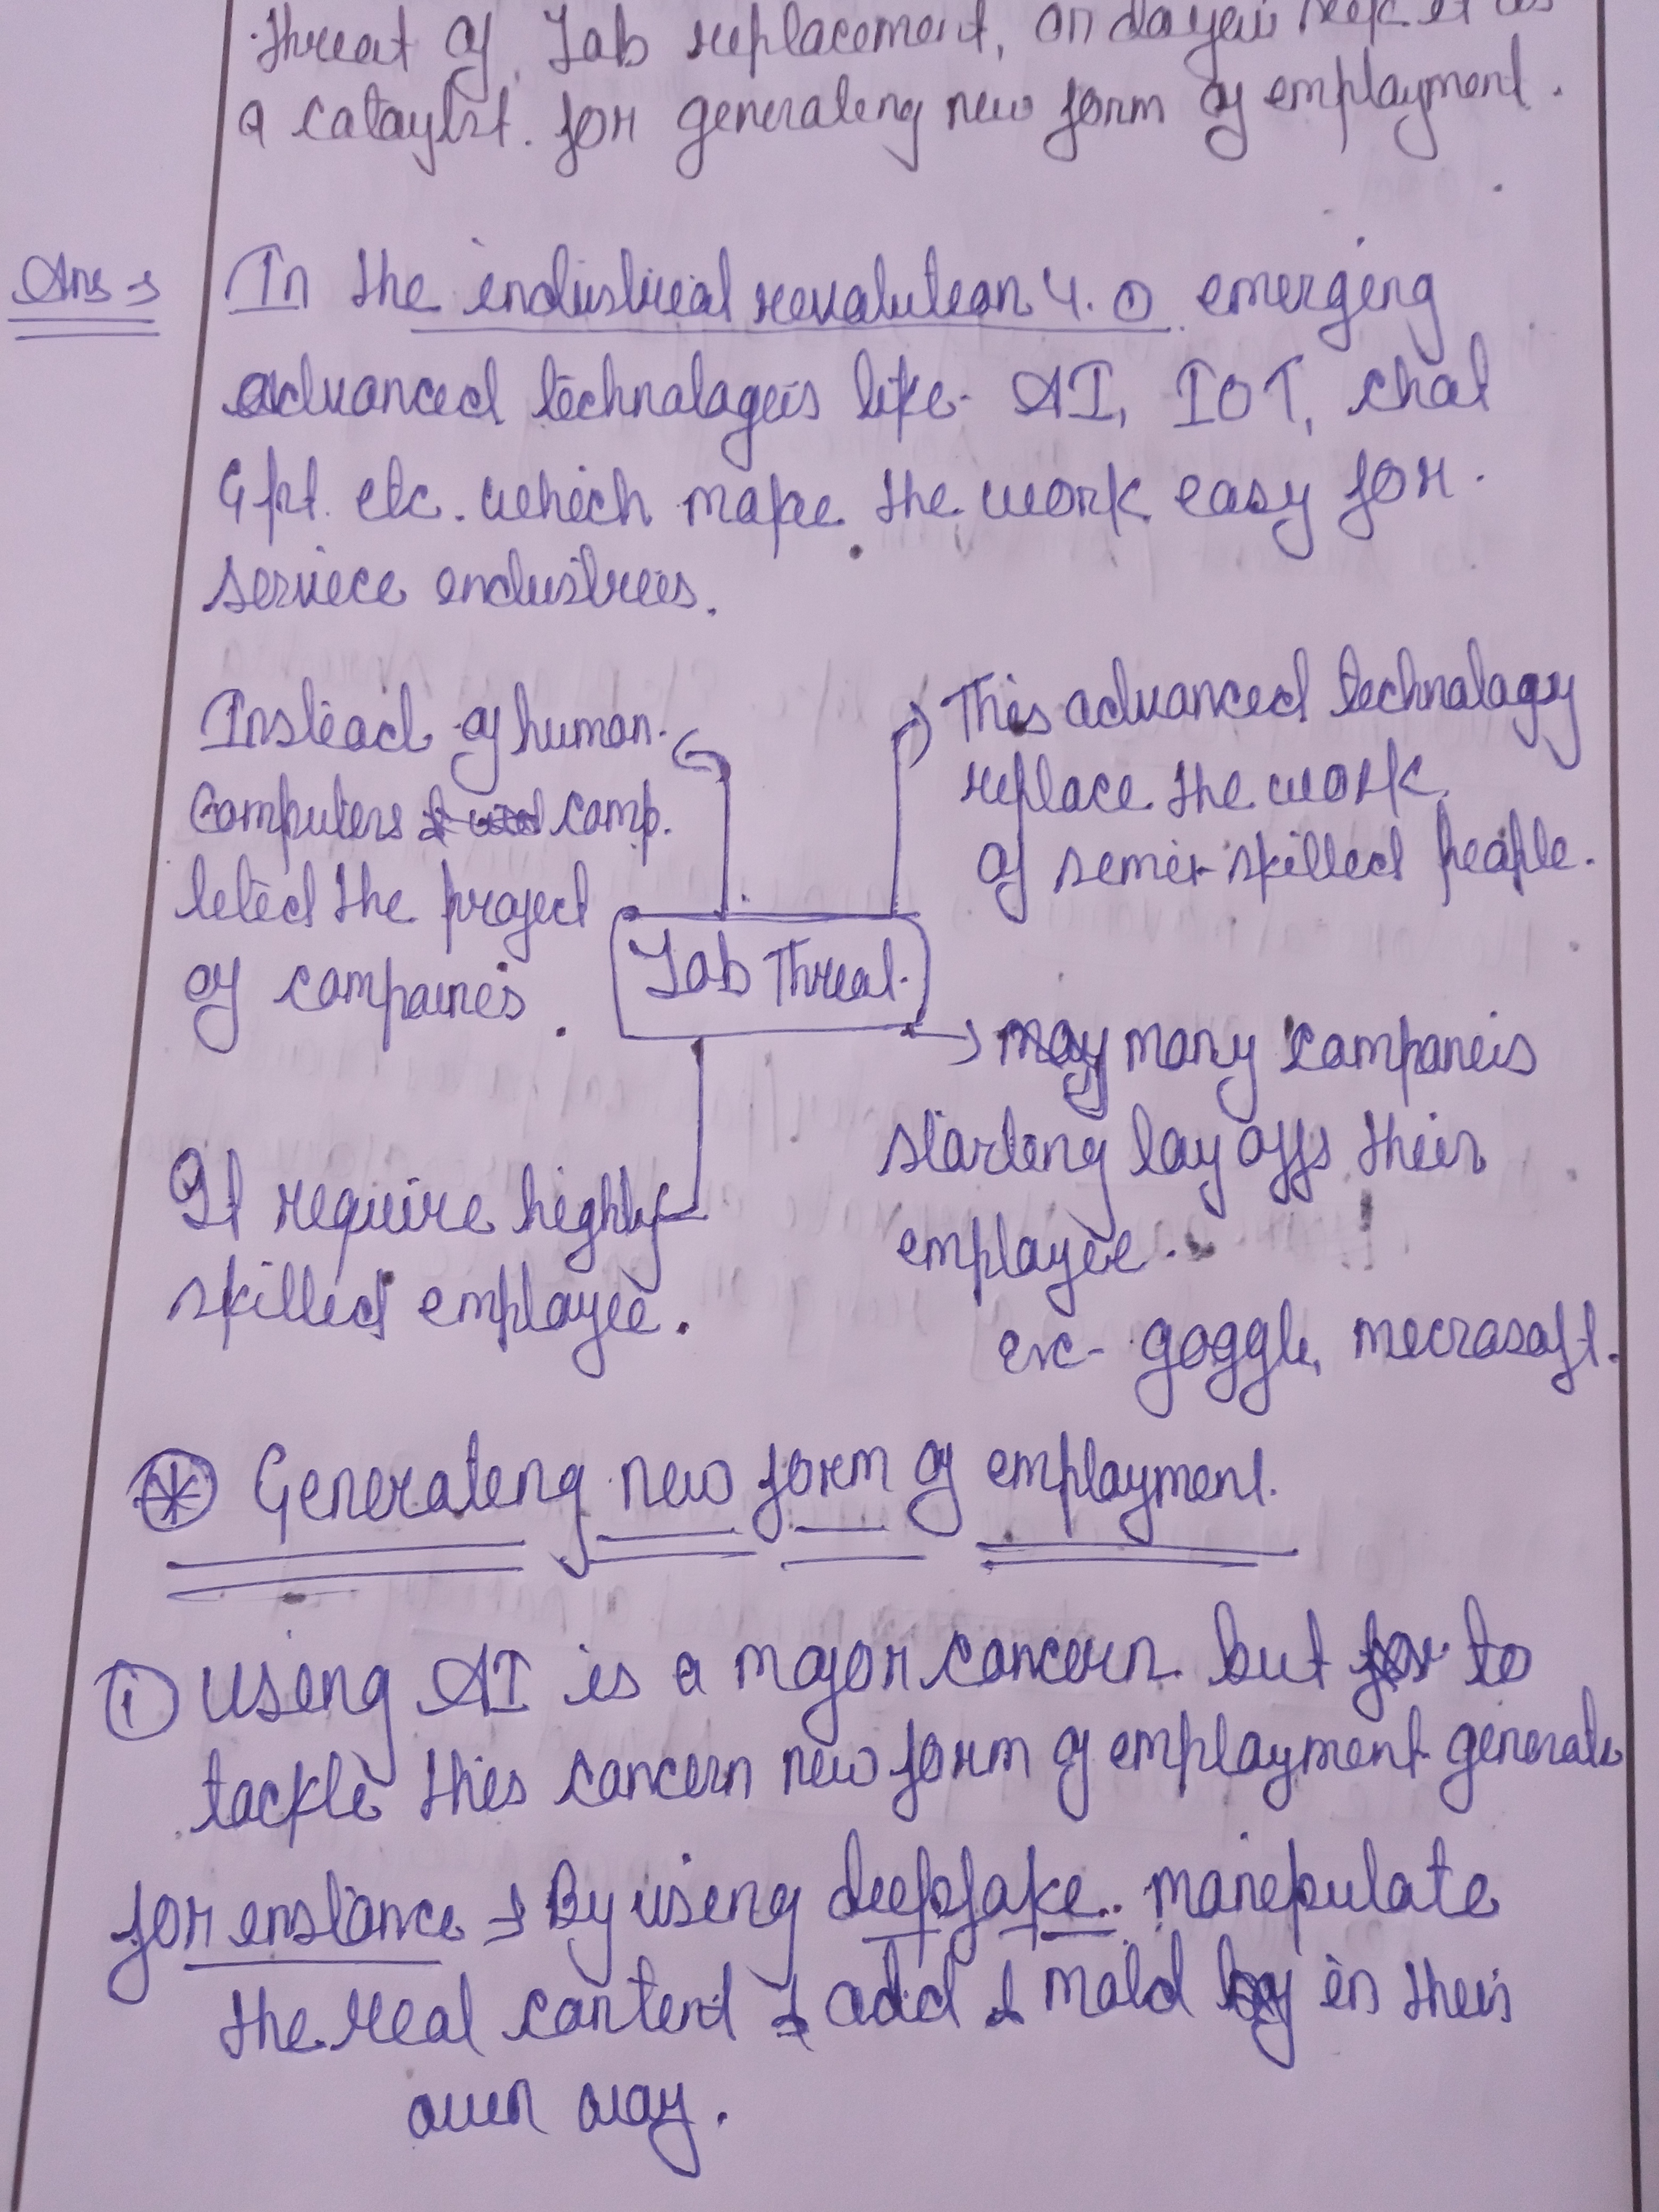 threat of Job replacement, or do you seek it as
a cataylst for generating new form of employment.
Ans →
In the industrial revolution 4.0 emerging
advanced technologies like - AI, IOT, chat
Gpt etc. which make the work easy for
service industries.
Instead of human
computers comp.
leted the project
of companies.
This advanced technology
replace the work
of semi-skilled people.
Job Threat.
many companies
starting lay offs their
employee.
ex- goggle, microsoft.
It require highly
skilled employee.
Generating new form of employment.
① Using AI is a major concern but to
tackle this concern new form of employment generate
for instance → By using deepfake manipulate
the real content & add & mold in their
own way.